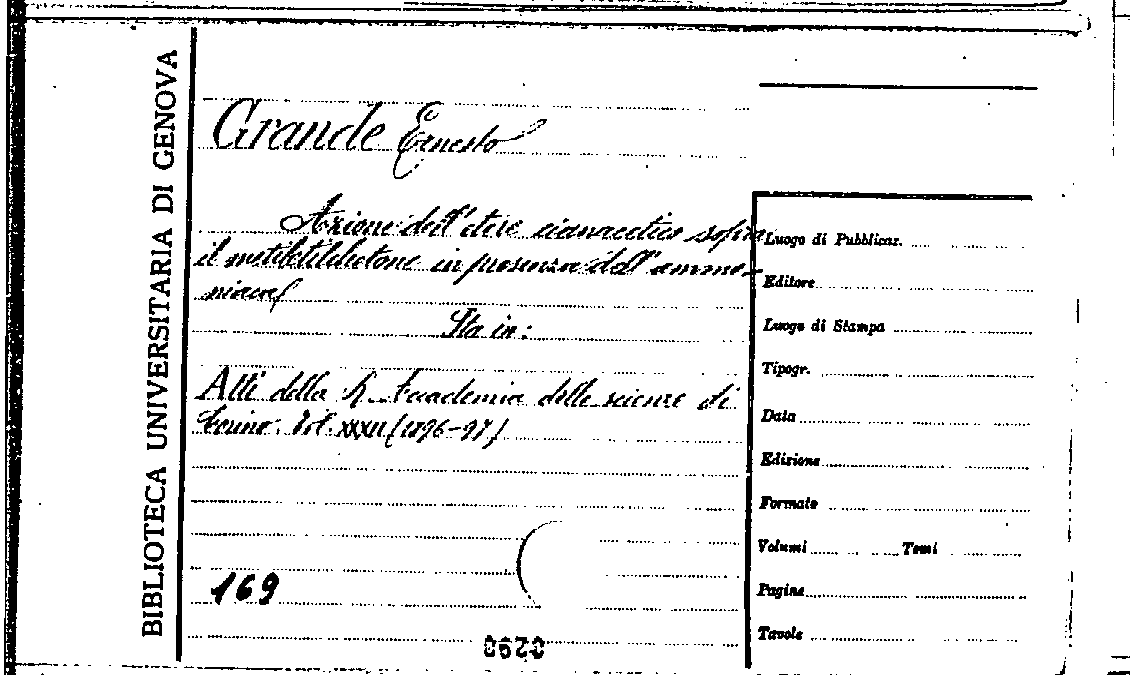 BIBLIOTECA UNIVERSITARIA DI GENOVA
Grande Ernesto
Azione dell'etere cianacetico sopra
il metiletilchetone in presenza dell'ammo-
niaca
Sta in:
Atti della R. Accademia delle scienze di
Torino. Vol. XXXII (1896-97)
169
Luogo di Pubblicaz.
Editore
Luogo di Stampa
Tipogr.
Data
Edizione
Formato
Volumi Tomi
Pagine
Tavole